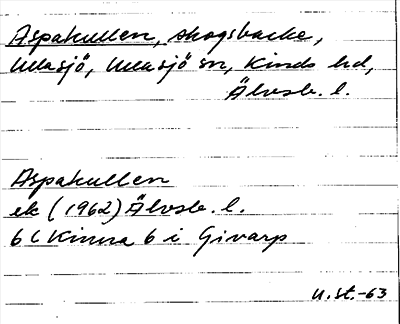 Aspakullen, skogsbacke,
Ullasjö, Ullasjö sn, Kinds hd,
Älvsb. l.
Aspakullen
ek (1962) Älvsb. l.
6 C Kinna 6 i Givarp
u.st.-63